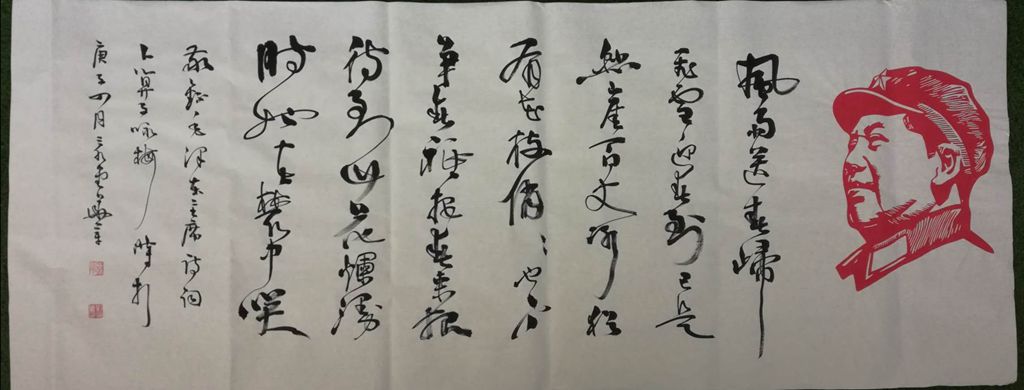 風雨送春歸
飛雪迎春到已是
懸崖百丈冰猶
有花枝俏〻也不
争春祇把春来報
待到山花爛漫
時她在叢中笑
敬録毛泽东主席诗词
卜算子咏梅 時
庚子四月